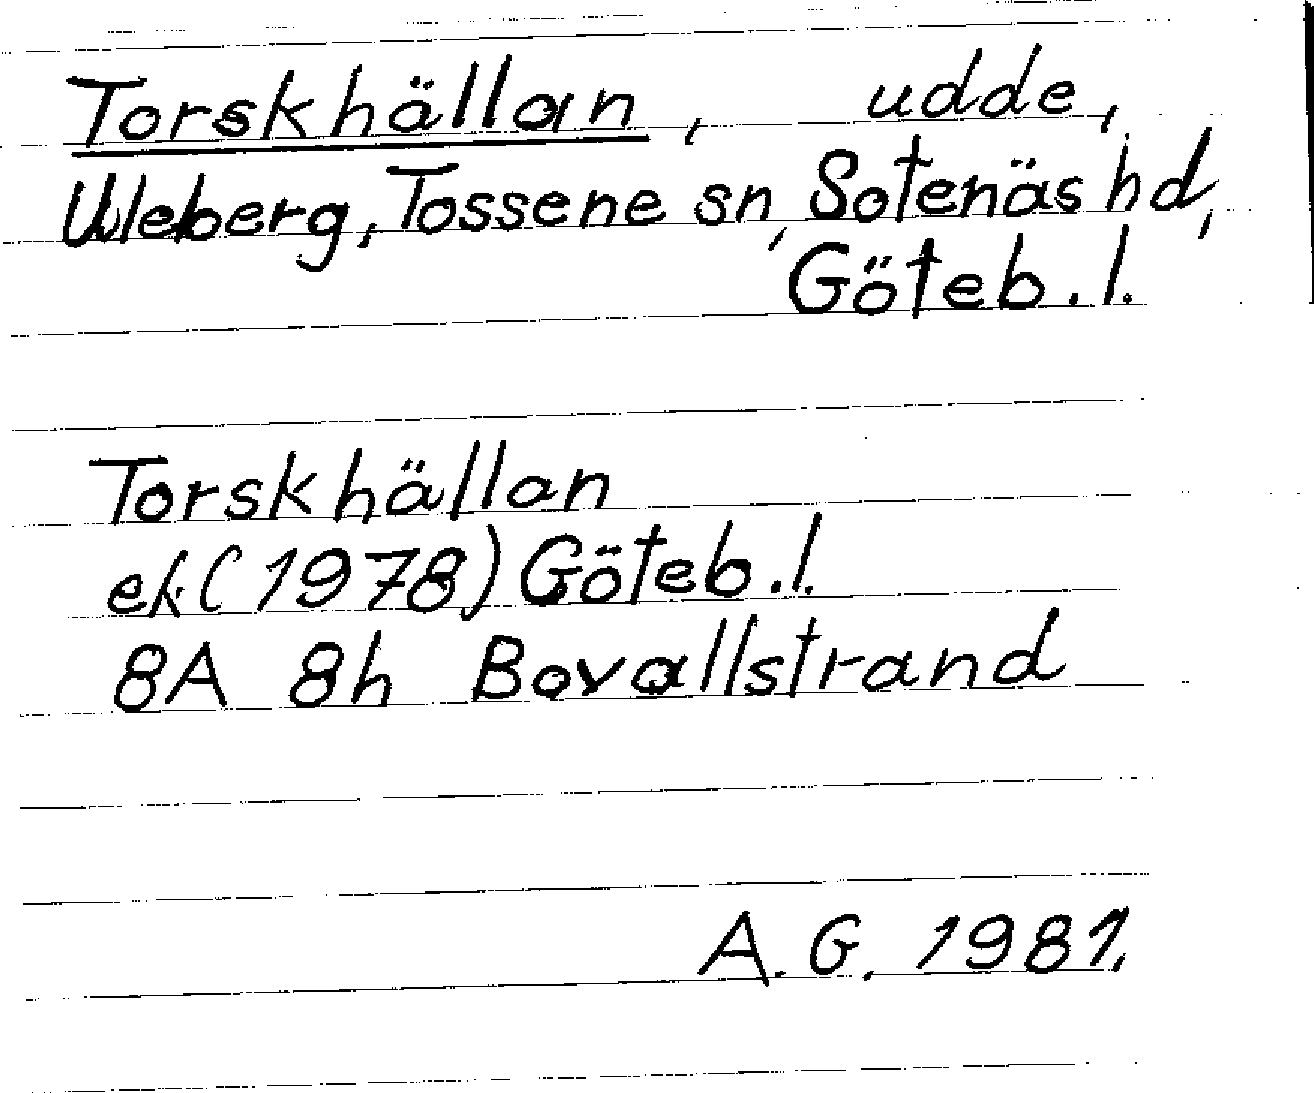 Torskhällan, udde,
Uleberg, Tossene sn, Sotenäs hd,
Göteb. l.
Torskhällan
ek (1978) Göteb. l.
8A 8h Bovallstrand
A. G. 1981.